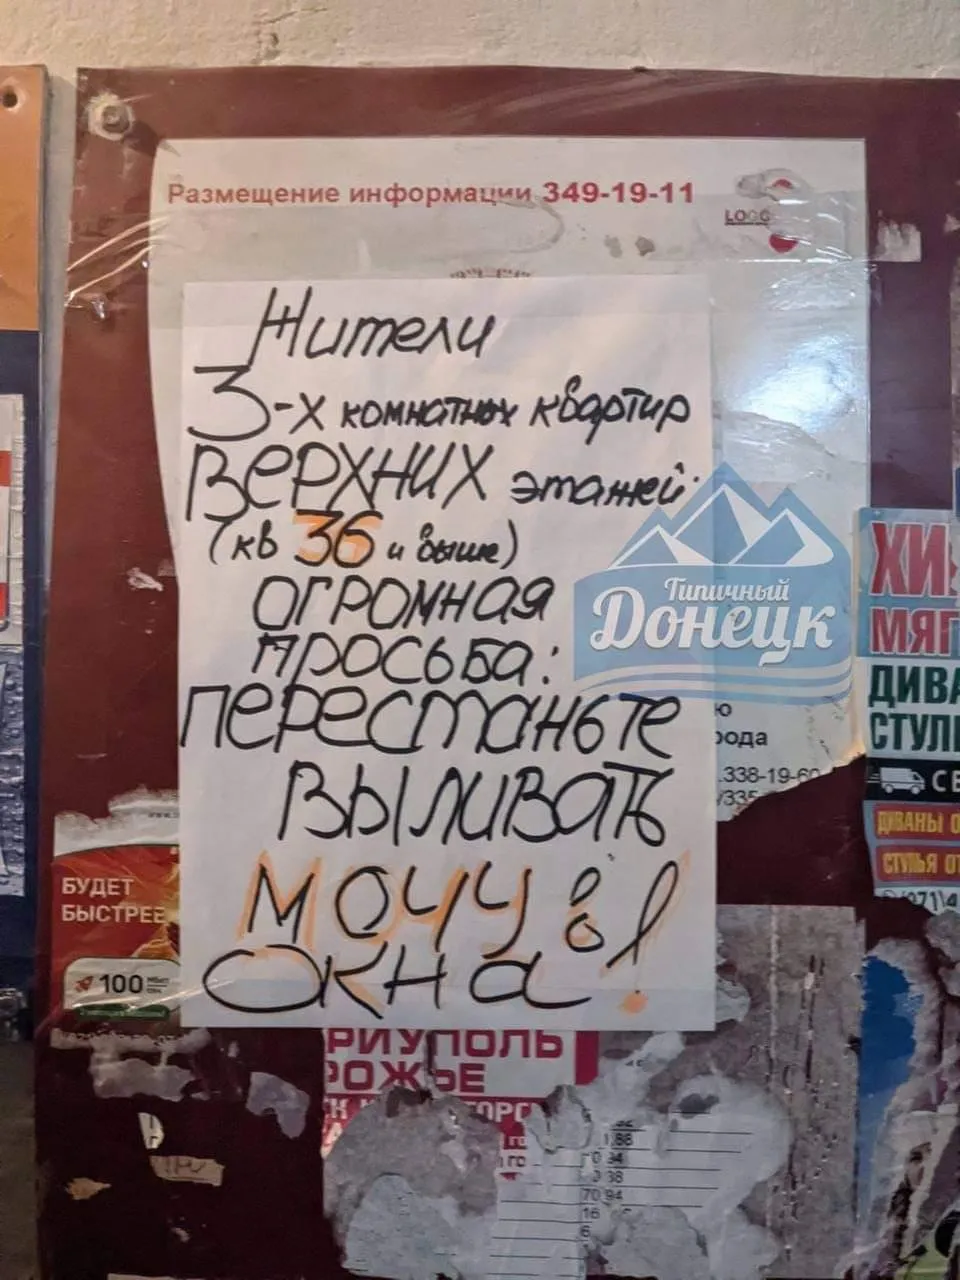 Размещение информации 349-19-11
LOGG
Жители
3-х комнатных квартир
ВЕРХНИХ этажей
(кв 36 и выше)
ОГРОМНАЯ
ПРОСЬБА:
ПЕРЕСТАНЬТЕ
ВЫЛИВАТЬ
МОЧУ в
ОКНА!
Типичный
Донецк
ю
рода
.338-19-60
/335
БУДЕТ
БЫСТРЕЕ
100
ХИ
МЯГ
ДИВА
СТУЛ
СЕ
ДИВАНЫ О
СТУЛЬЯ ОТ
(071)4
РИУПОЛЬ
РОЖЬЕ
ТОРС
1.88
70 94
16
6